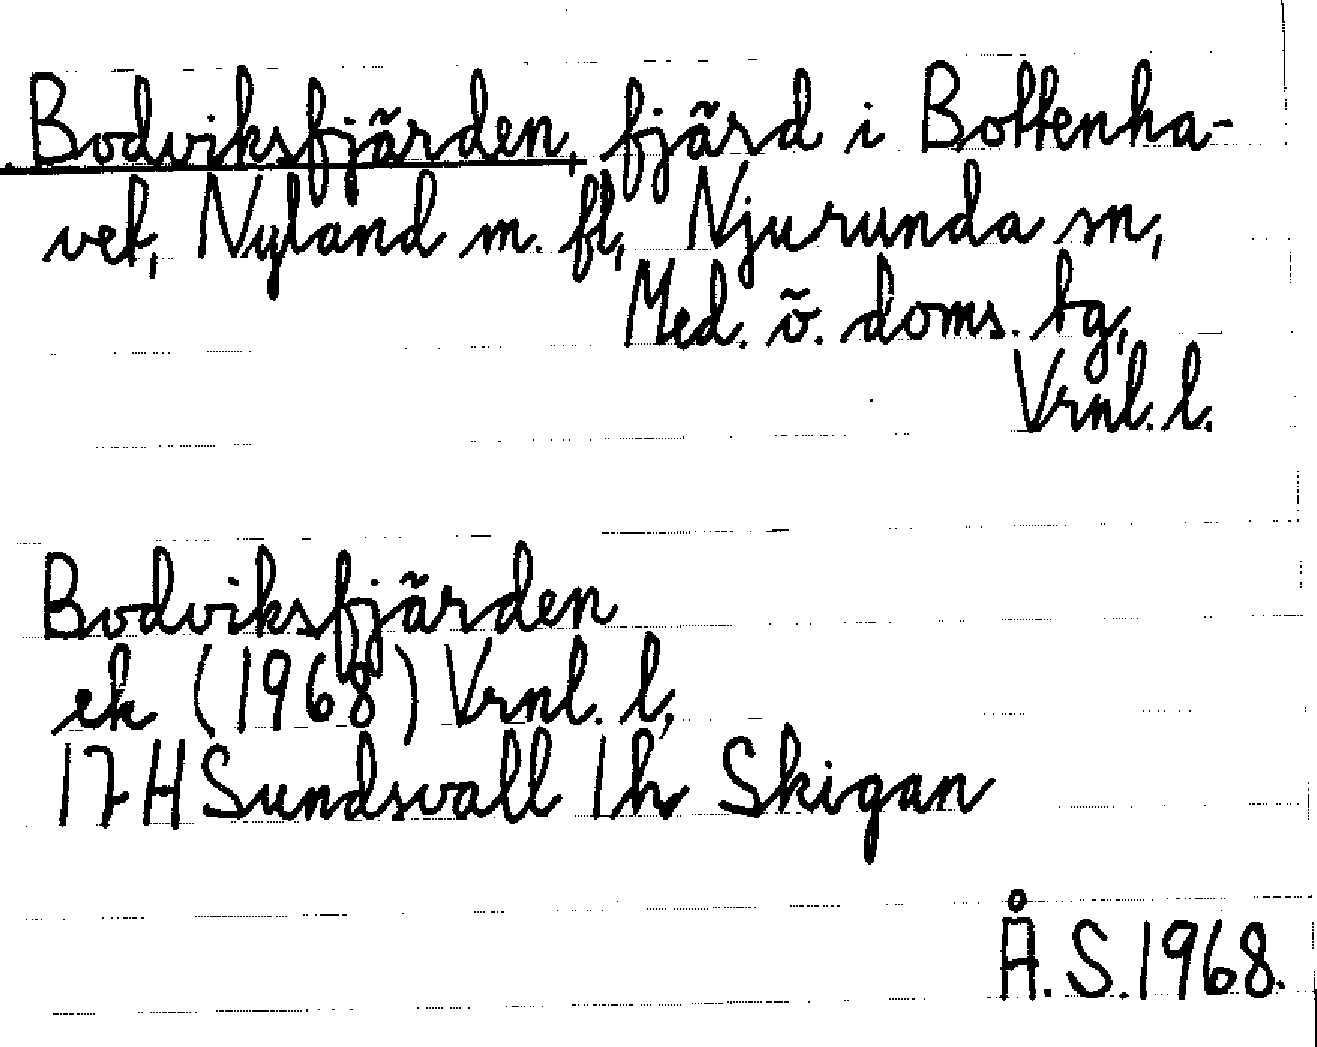 Bodviksfjärden, fjärd i Bottenha-
vet, Nyland m. fl., Njurunda sn,
Med. ö. doms. tg,
Vrnl. l.
Bodviksfjärden
ek (1968) Vrnl. l,
17H Sundsvall 1h Skigan
Å. S. 1968.